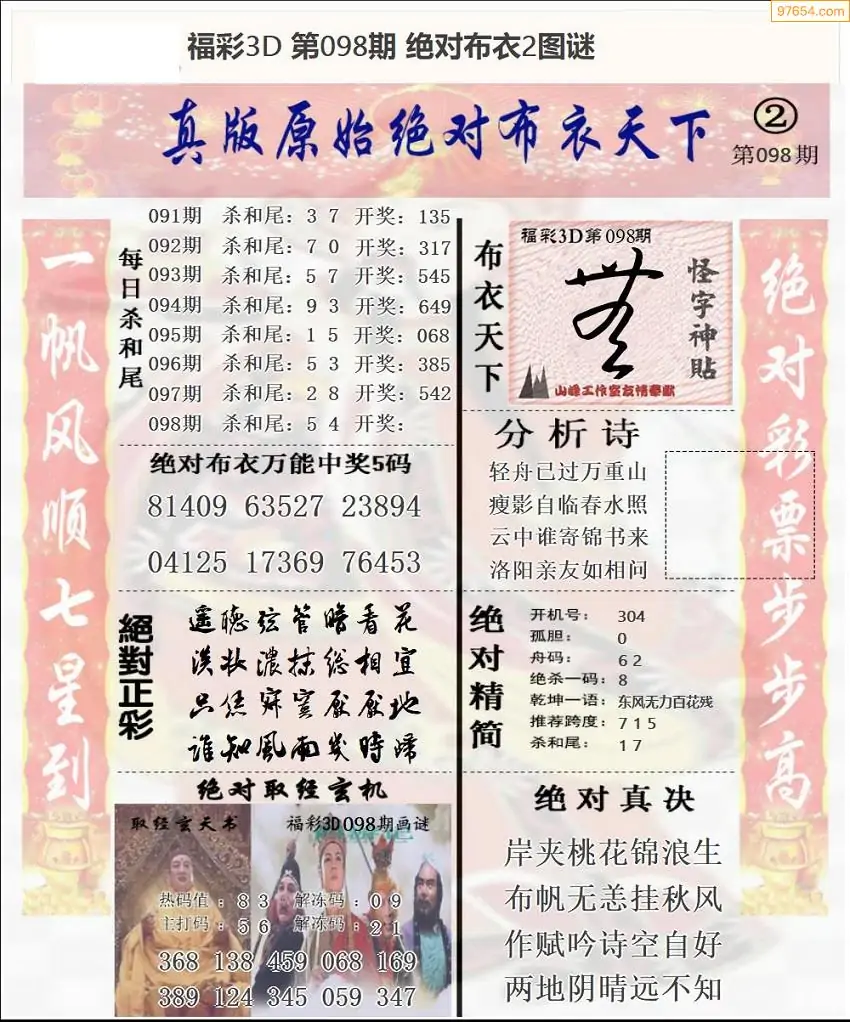 97654.com
福彩3D 第098期 绝对布衣2图谜
真版原始绝对布衣天下
②
第098期
一帆风顺七星到
每日杀和尾
091期 杀和尾：3 7 开奖：135
092期 杀和尾：7 0 开奖：317
093期 杀和尾：5 7 开奖：545
094期 杀和尾：9 3 开奖：649
095期 杀和尾：1 5 开奖：068
096期 杀和尾：5 3 开奖：385
097期 杀和尾：2 8 开奖：542
098期 杀和尾：5 4 开奖：
绝对布衣万能中奖5码
81409 63527 23894
04125 17369 76453
絕對正彩
遥聴弦管暗看花
淡妆濃抹総相宜
只恁寂寞厭厭地
谁知風雨灾時歸
绝对取经玄机
取经玄天书
福彩3D098期画谜
热码值：8 3 解冻码：0 9
主打码：5 6 解冻码：2 1
368 138 459 068 169
389 124 345 059 347
布衣天下
福彩3D第098期
怪字神貼
山峰工作室友情奉献
分析诗
轻舟已过万重山
瘦影自临春水照
云中谁寄锦书来
洛阳亲友如相问
绝对精简
开机号： 304
孤胆： 0
舟码： 6 2
绝杀一码：8
乾坤一语：东风无力百花残
推荐跨度：7 1 5
杀和尾： 1 7
绝对真决
岸夹桃花锦浪生
布帆无恙挂秋风
作赋吟诗空自好
两地阴晴远不知
绝对彩票步步高